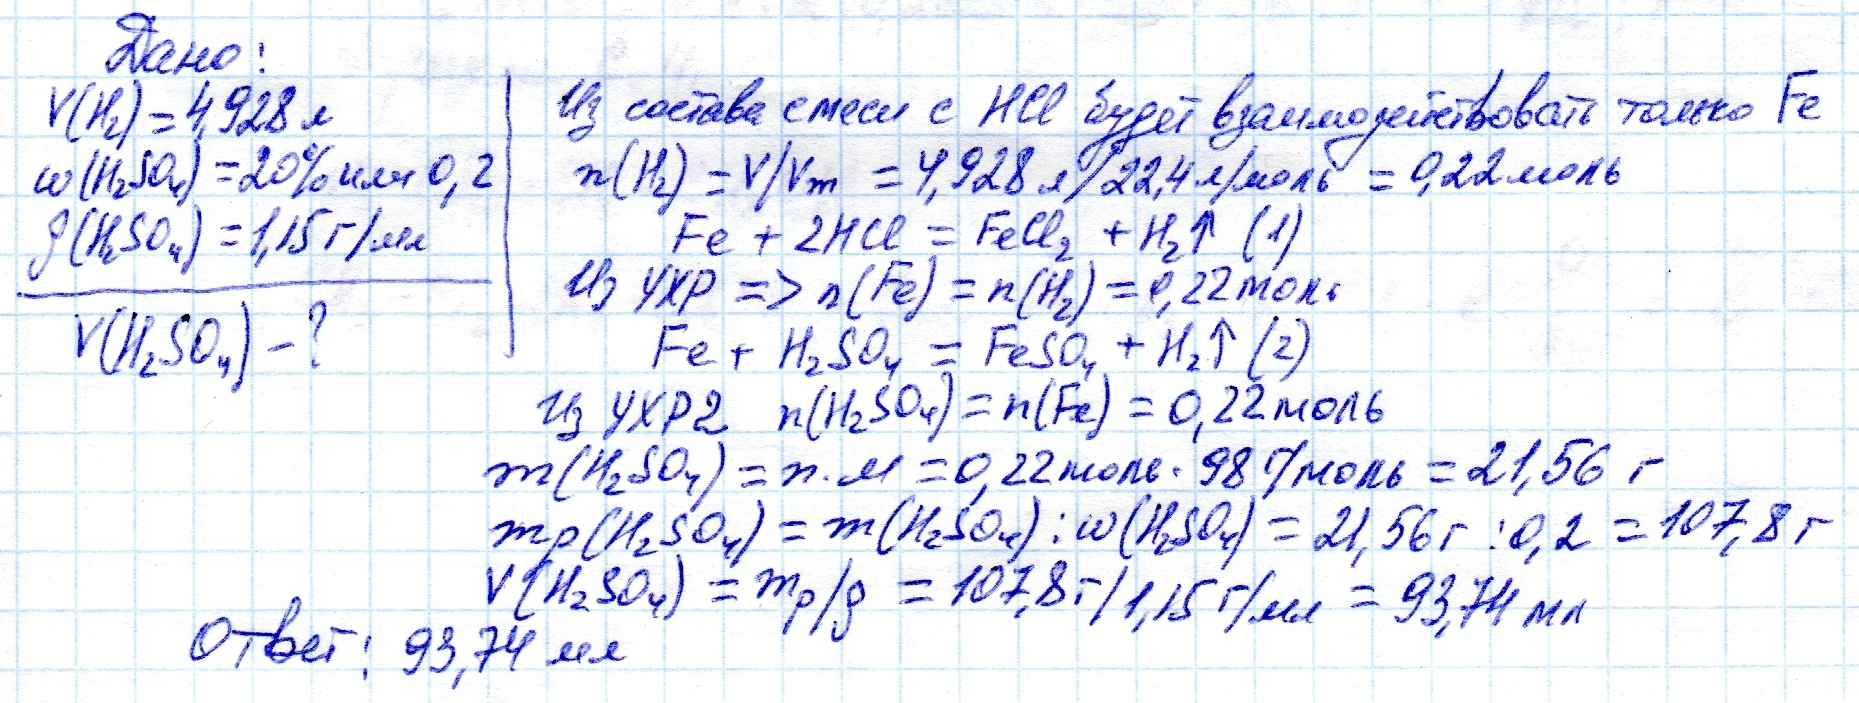 Дано:
V(H₂) = 4,928 л
ω(H₂SO₄) = 20% или 0,2
ρ(H₂SO₄) = 1,15 г/мл
V(H₂SO₄) – ?
Из состава смеси с HCl будет взаимодействовать только Fe
n(H₂) = V/Vm = 4,928 л/22,4 л/моль = 0,22 моль
Fe + 2HCl = FeCl₂ + H₂↑ (1)
Из УХР => n(Fe) = n(H₂) = 0,22 моль
Fe + H₂SO₄ = FeSO₄ + H₂↑ (2)
Из УХР2 n(H₂SO₄) = n(Fe) = 0,22 моль
m(H₂SO₄) = n · M = 0,22 моль · 98 г/моль = 21,56 г
mр(H₂SO₄) = m(H₂SO₄) : ω(H₂SO₄) = 21,56 г : 0,2 = 107,8 г
V(H₂SO₄) = mр/ρ = 107,8 г/1,15 г/мл = 93,74 мл
Ответ: 93,74 мл